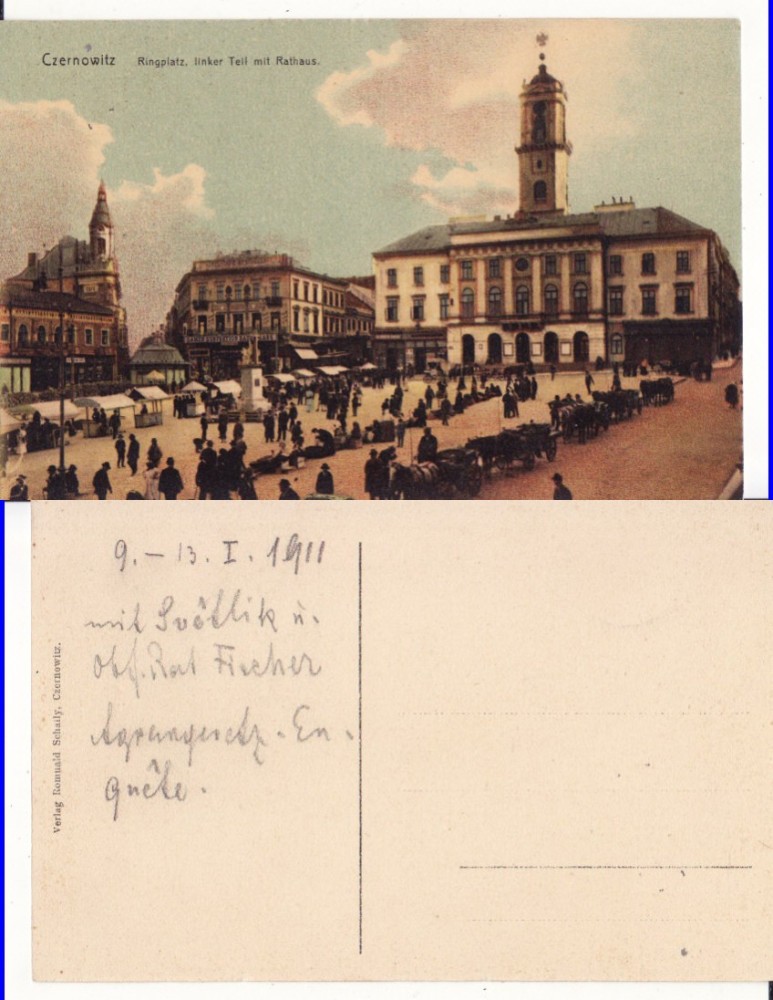 Czernowitz Ringplatz, linker Teil mit Rathaus.
9. – 13. I. 1911
mit Světlik u.
Obf. Rat Fischer
Agrargesetz - En-
quête.
Verlag Romuald Schally, Czernowitz.